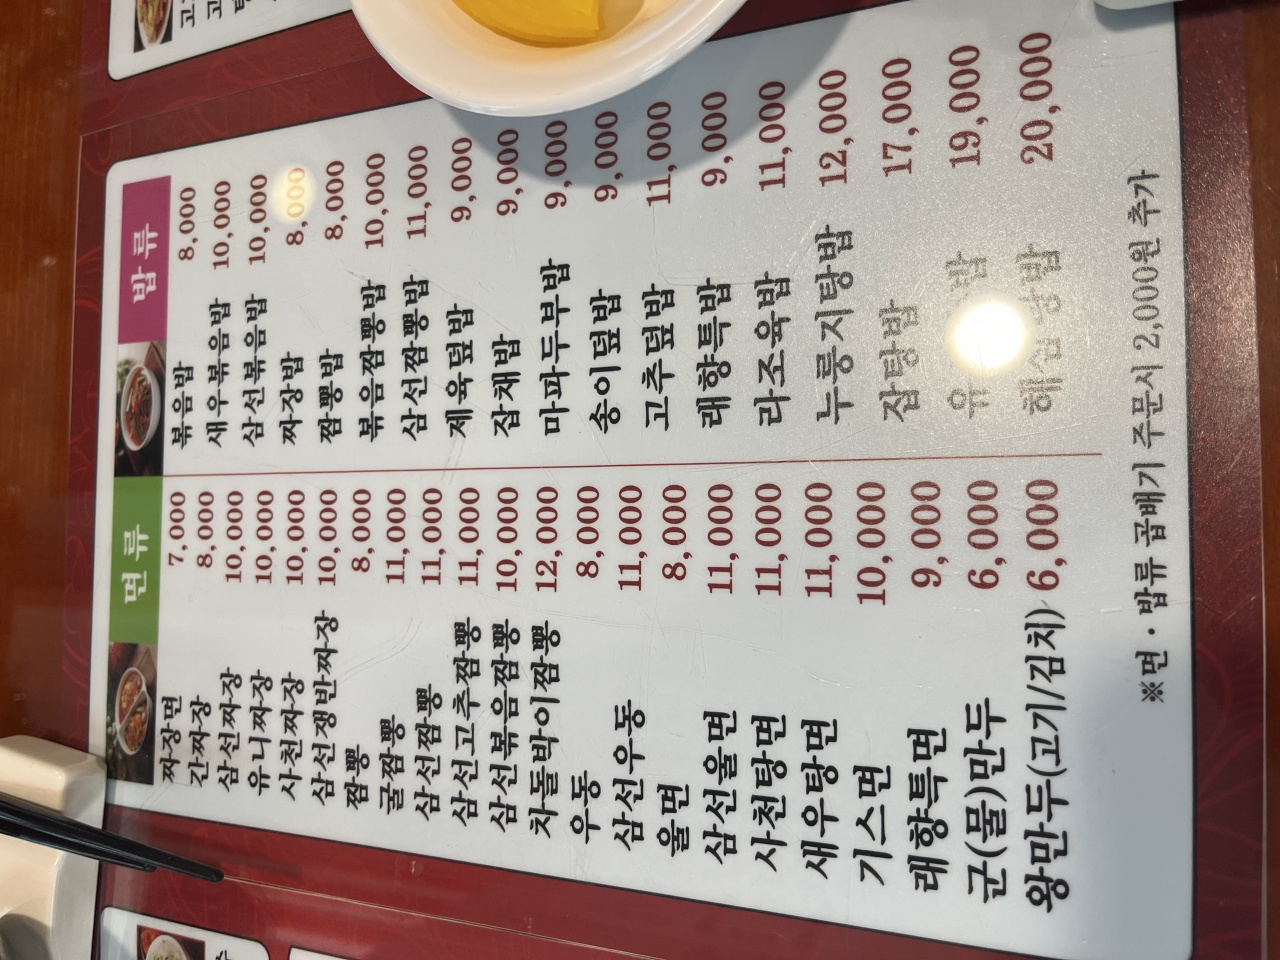 면류
짜장면 7,000
간짜장 8,000
삼선짜장 10,000
유니짜장 10,000
사천짜장 10,000
삼선쟁반짜장 10,000
짬뽕 8,000
굴짬뽕 11,000
삼선짬뽕 11,000
삼선고추짬뽕 11,000
삼선볶음짬뽕 10,000
차돌박이짬뽕 12,000
우동 8,000
삼선우동 11,000
울면 8,000
삼선울면 11,000
사천탕면 11,000
새우탕면 11,000
기스면 10,000
래향특면 9,000
군(물)만두 6,000
왕만두(고기/김치) 6,000
밥류
볶음밥 8,000
새우볶음밥 10,000
삼선볶음밥 10,000
짜장밥 8,000
짬뽕밥 8,000
볶음짬뽕밥 10,000
삼선짬뽕밥 11,000
제육덮밥 9,000
잡채밥 9,000
마파두부밥 9,000
송이덮밥 9,000
고추덮밥 11,000
래향특밥 9,000
라조육밥 11,000
누룽지탕밥 12,000
잡탕밥 17,000
19,000
20,000
※면·밥류 곱배기 주문시 2,000원 추가